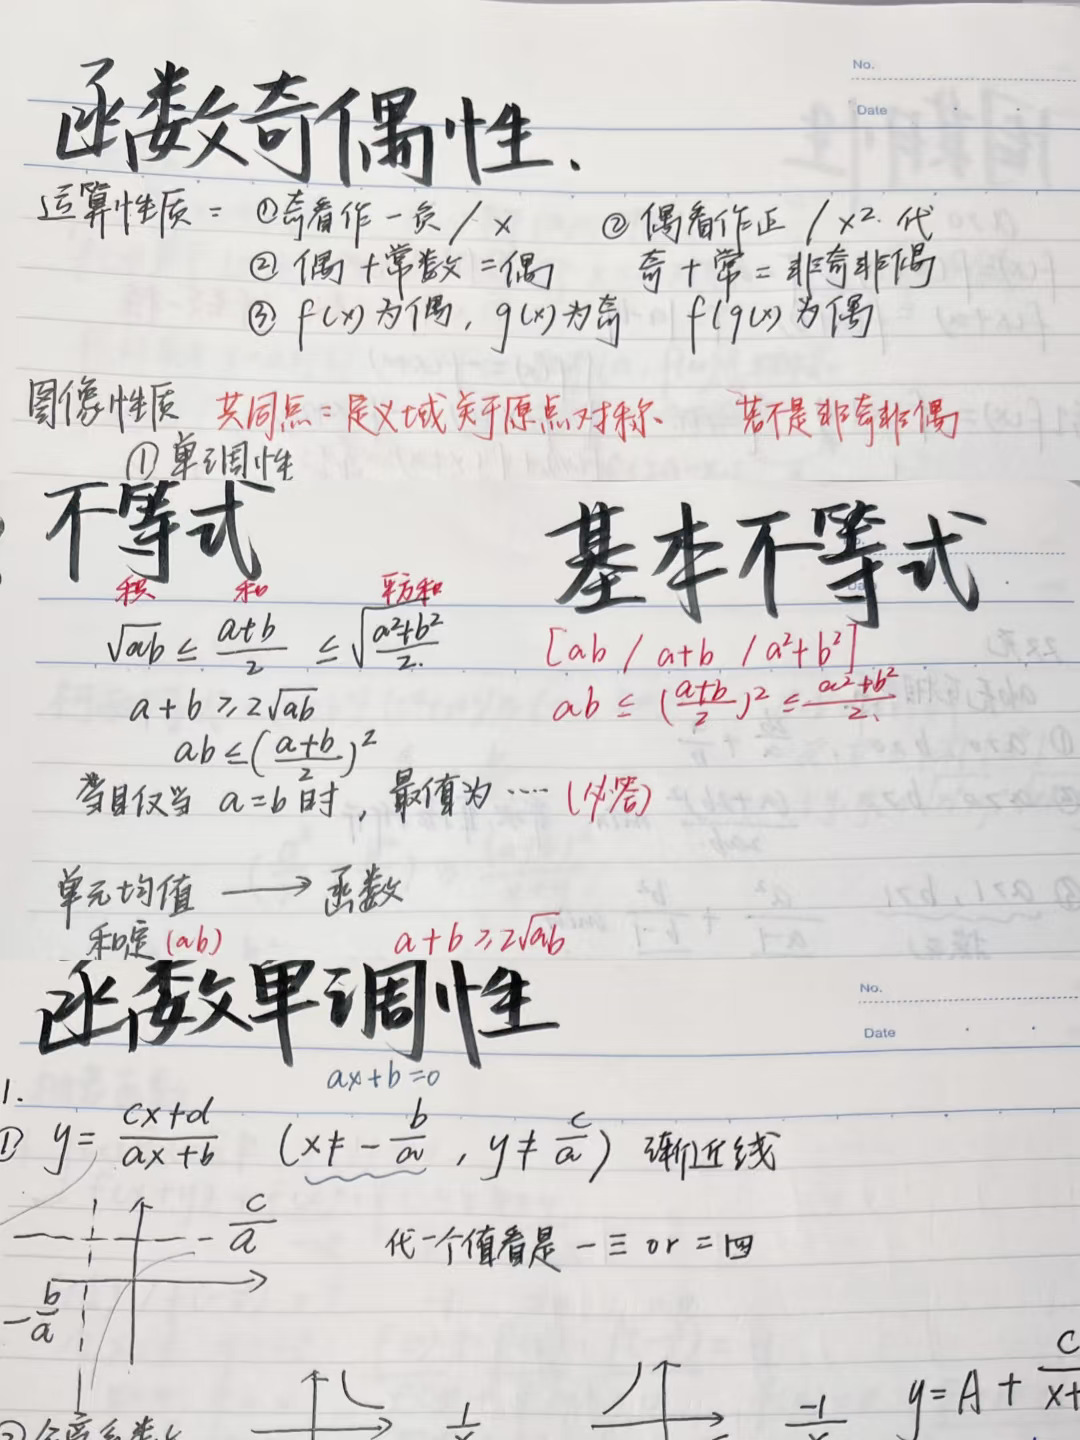 No.
Date
函数奇偶性.
运算性质: ①奇看作一负/x ②偶看作正/x²代
② 偶+常数=偶 奇+常=非奇非偶
③ f(x)为偶, g(x)为奇 f(g(x)为偶
图像性质 共同点:定义域关于原点对称. 若不是非奇非偶
①单调性
不等式
基本不等式
积 和 平方和
√ab ≤ (a+b)/2 ≤ √((a²+b²)/2)
[ab / a+b / a²+b²]
a+b≥2√ab
ab ≤ ((a+b)/2)² ≤ (a²+b²)/2
ab≤((a+b)/2)²
当且仅当 a=b时, 最值为…… (必答)
单元均值 → 函数
和定(ab) a+b≥2√ab
函数单调性
No.
Date
ax+b=0
1.
① y= (cx+d)/(ax+b) (x≠-b/a, y≠c/a) 渐近线
c/a
代一个值看是一三or二四
-b/a
-1
y=A+